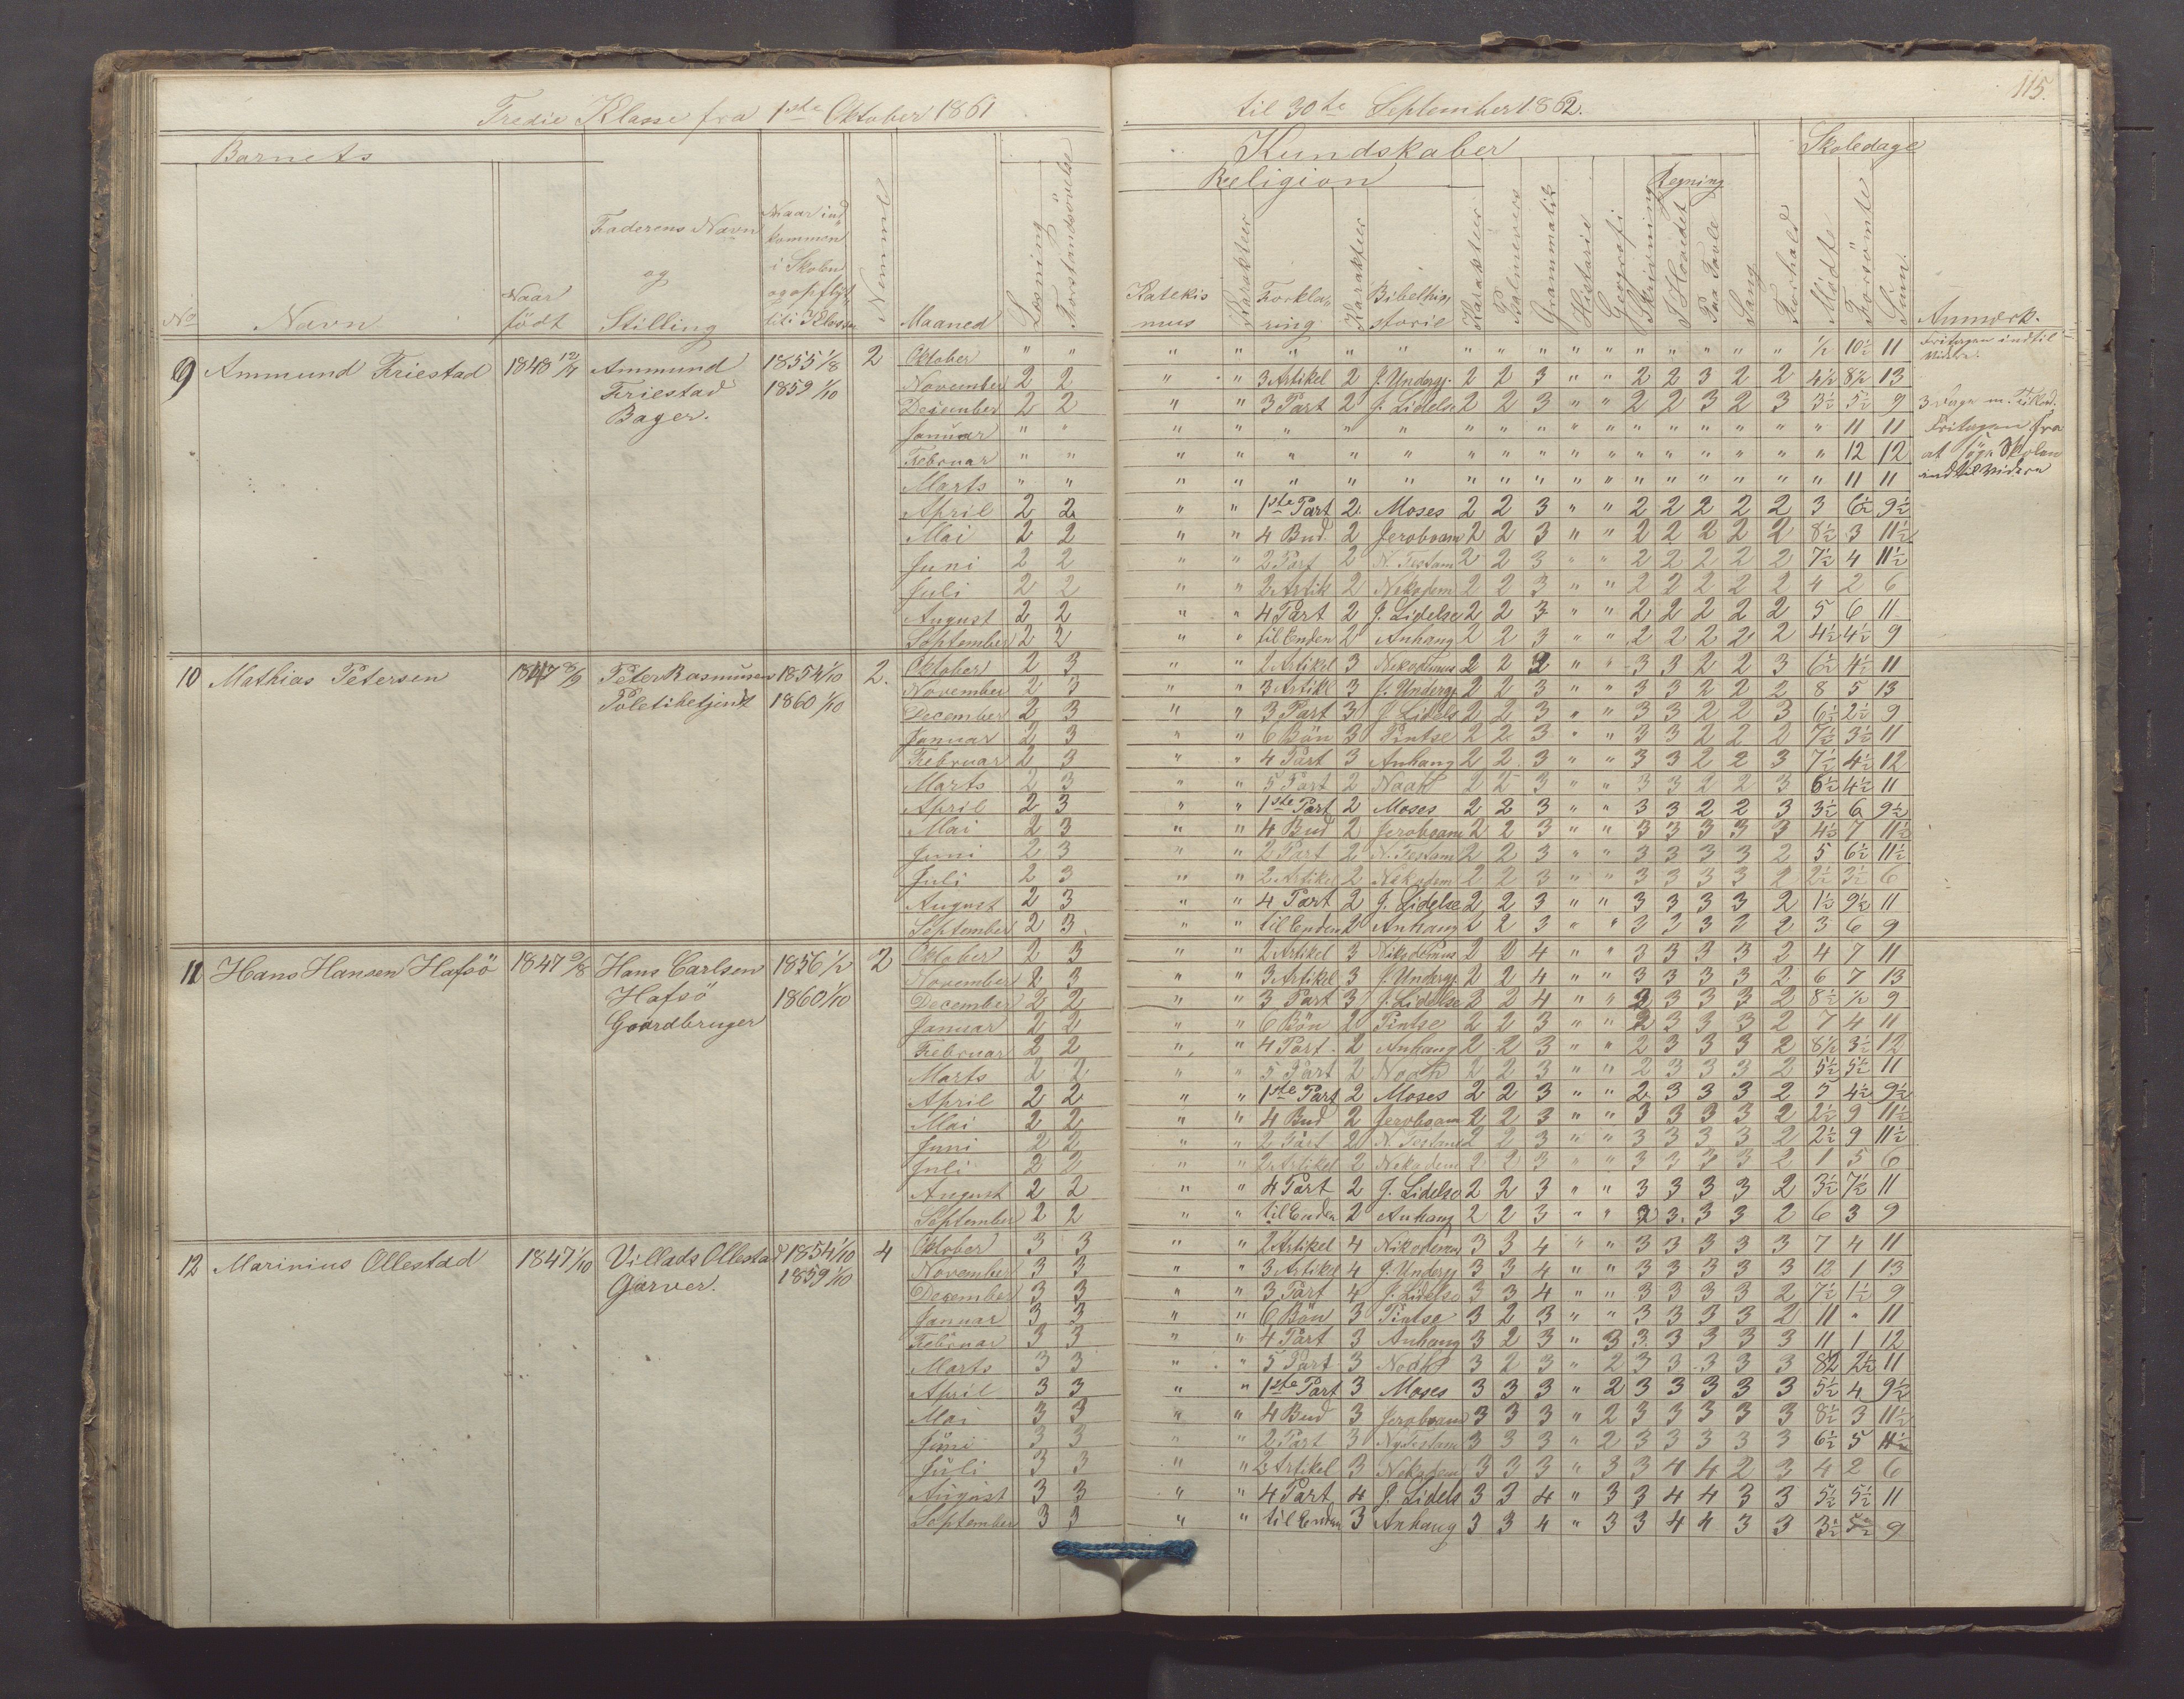 115.
Tredie Klasse fra 1ste Oktober 1861 til 30te September 1862.
Barnets
Kundskaber
Skoledage
Religion
Regning
No Navn Naar födt Faderens Navn og Stilling Naar indkommen i Skolen og opflyt til 3 Klasse Nemme Maaned Læsning Forstandsövelse
Katekismus Karakteer Forklaring Karakteer Bibelhistorie Karakteer Psalmevers Grammatik Historie Geografi Skrivning I Hovedet Paa Tavle Sang Forhold Mödte Forsömte Sum. Anmærk.
9 Ammund Friestad 1848 12/4 Ammund 1855 1/8 2 Oktober " " " " " " " " " " " " " " " " " " ½ 10½ 11 Fritagen indtil
Friestad 1859 1/10 November 2 2 " " 3 Artikel 2 J. Undergj. 2 2 3 " " 2 2 3 2 2 4½ 8½ 13
Bager. December 2 2 " " 3 Part 2 J. Lidelse 2 2 3 " " 2 2 3 2 3 3½ 5½ 9
Januar " " " " " " " " " " " " " " " " " " " 11 11 Fritagen fra
Februar " " " " " " " " " " " " " " " " " " " 12 12 at söge Skolen
Marts " " " " " " " " " " " " " " " " " " " 11 11 indtil videre
April 2 2 " " 1ste Part 2 Moses 2 2 3 " " 2 2 2 2 2 3 6½ 9½
Mai 2 2 " " 4 Bud 2 Jeroboam 2 2 3 " " 2 2 2 2 2 8½ 3 11½
Juni 2 2 " " 2 Part 2 N. Testam 2 2 3 " " 2 2 2 2 2 7½ 4 11½
Juli 2 2 " " 2 Artik 2 Nekodem 2 2 3 " " 2 2 2 2 2 4 2 6
August 2 2 " " 4 Part 2 J. Lidelse 2 2 3 " " 2 2 2 2 2 5 6 11
September 2 2 " " til Enden 2 Anhang 2 2 3 " " 2 2 2 2 2 4½ 4½ 9
10 Mathias Petersen 1847 8/9 Peter Rasmusen 1854 1/10 2. Oktober 2 3 " " 2 Artikel 3 Nekodemus 2 2 2 " " 3 3 2 2 3 6½ 4½ 11
Poletibetjent 1860 1/10 November 2 3 " " 3 Artikl 3 J. Undergj. 2 2 3 " " 3 3 2 2 2 8 5 13
December 2 3 " " 3 Part 3 J. Lidels 2 2 3 " " 3 3 2 2 3 6½ 2½ 9
Januar 2 3 " " 6 Bön 3 Pintse 2 2 3 " " 3 3 2 2 2 7½ 3½ 11
Februar 2 3 " " 4 Part 3 Anhang 2 2 3 " " 3 3 2 2 3 7½ 4½ 12
Marts 2 3 " " 5 Part 2 Noah 2 2 3 " " 3 3 2 2 3 6½ 4½ 11
April 2 3 " " 1ste Part 2 Moses 2 2 3 " " 3 3 2 2 3 3½ 6 9½
Mai 2 3 " " 4 Bud 2 Jeroboam 2 2 3 " " 3 3 3 3 3 4½ 7 11½
Juni 2 3 " " 2 Part 2 N. Testam 2 2 3 " " 3 3 3 3 2 5 6½ 11½
Juli 2 3 " " 2 Artikel 2 Nekodem 2 2 3 " " 3 3 3 3 2 2½ 3½ 6
August 2 3 " " 4 Part 2 J. Lidelse 2 2 3 " " 3 3 3 3 2 1½ 9½ 11
September 2 3 " " til Enden 2 Anhang 2 2 3 " " 3 3 3 3 2 3 6 9
11 Hans Hansen Hafsö 1847 9/8 Hans Carlsen 1856 1/2 2 Oktober 2 3 " " 2 Artikel 3 Nikodemus 2 2 4 " " 3 3 3 3 2 4 7 11
Hafsö 1860 1/10 November 2 3 " " 3 Artikel 3 J. Undergj. 2 2 4 " " 3 3 3 3 2 6 7 13
Gaardbruger December 2 2 " " 3 Part 3 J. Lidelse 2 2 4 " " 2 3 3 3 2 8½ ½ 9
Januar 2 2 " " 6 Bön 2 Pintse 2 2 3 " " 2 3 3 3 2 7 4 11
Februar 2 2 " " 4 Part. 2 Anhang 2 2 3 " " 2 3 3 3 2 8½ 3½ 12
Marts 2 2 " " 5 Part 2 Noah 2 2 3 " " 2 3 3 3 2 5½ 5½ 11
April 2 2 " " 1ste Part 2 Moses 2 2 3 " " 2 3 3 3 2 5 4½ 9½
Mai 2 2 " " 4 Bud 2 Jeroboam 2 2 3 " " 3 3 3 3 2 2½ 9 11½
Juni 2 2 " " 2 Part 2 N. Testame 2 2 3 " " 3 3 3 3 2 2½ 9 11½
Juli 2 2 " " 2 Artikel 2 Nekodem 2 2 3 " " 3 3 3 3 2 1 5 6
August 2 2 " " 4 Part 2 J. Lidelse 2 2 3 " " 3 3 3 3 2 3½ 7½ 11
September 2 2 " " til Enden 2 Anhang 2 2 3 " " 2 3 3 3 2 6 3 9
12 Marinius Ollestad 1847 1/10 Villads Ollestad 1854 1/10 4 Oktober 3 3 " " 2 Artikel 4 Nikodemus 3 3 4 " " 3 3 3 3 3 7 4 11
Garver. 1859 1/10 November 3 3 " " 3 Artikel 4 J. Undergj 3 3 4 " " 3 3 3 3 3 12 1 13
December 3 3 " " 3 Part 4 J. Lidelse 3 3 4 " " 3 3 3 3 2 7½ 1½ 9
Januar 3 3 " " 6 Bön 3 Pintse 3 2 3 " " 3 3 3 3 2 11 " 11
Februar 3 3 " " 4 Part 3 Anhang 3 2 3 " 3 3 3 3 3 3 11 1 12
Marts 3 3 " " 5 Part 3 Noah 3 2 3 " 2 3 3 3 3 3 8½ 2½ 11
April 3 3 " " 1ste Part 3 Moses 3 3 3 " 2 3 3 3 3 3 5½ 4 9½
Mai 3 3 " " 4 Bud 3 Jeroboam 3 3 3 " 2 3 3 3 3 3 8½ 3 11½
Juni 3 3 " " 2 Part 3 Ny Testam 3 3 3 " 2 3 3 3 3 3 6½ 5 11½
Juli 3 3 " " 2 Artikel 3 Nekodem 3 3 3 " 3 3 4 4 2 3 4 2 6
August 3 3 " " 4 Part 4 J. Lidels 3 3 4 " 3 3 4 4 3 3 5½ 5½ 11
September 3 3 " " til Enden 3 Anhang 3 3 4 " 3 3 4 4 3 3 3½ 5½ 9